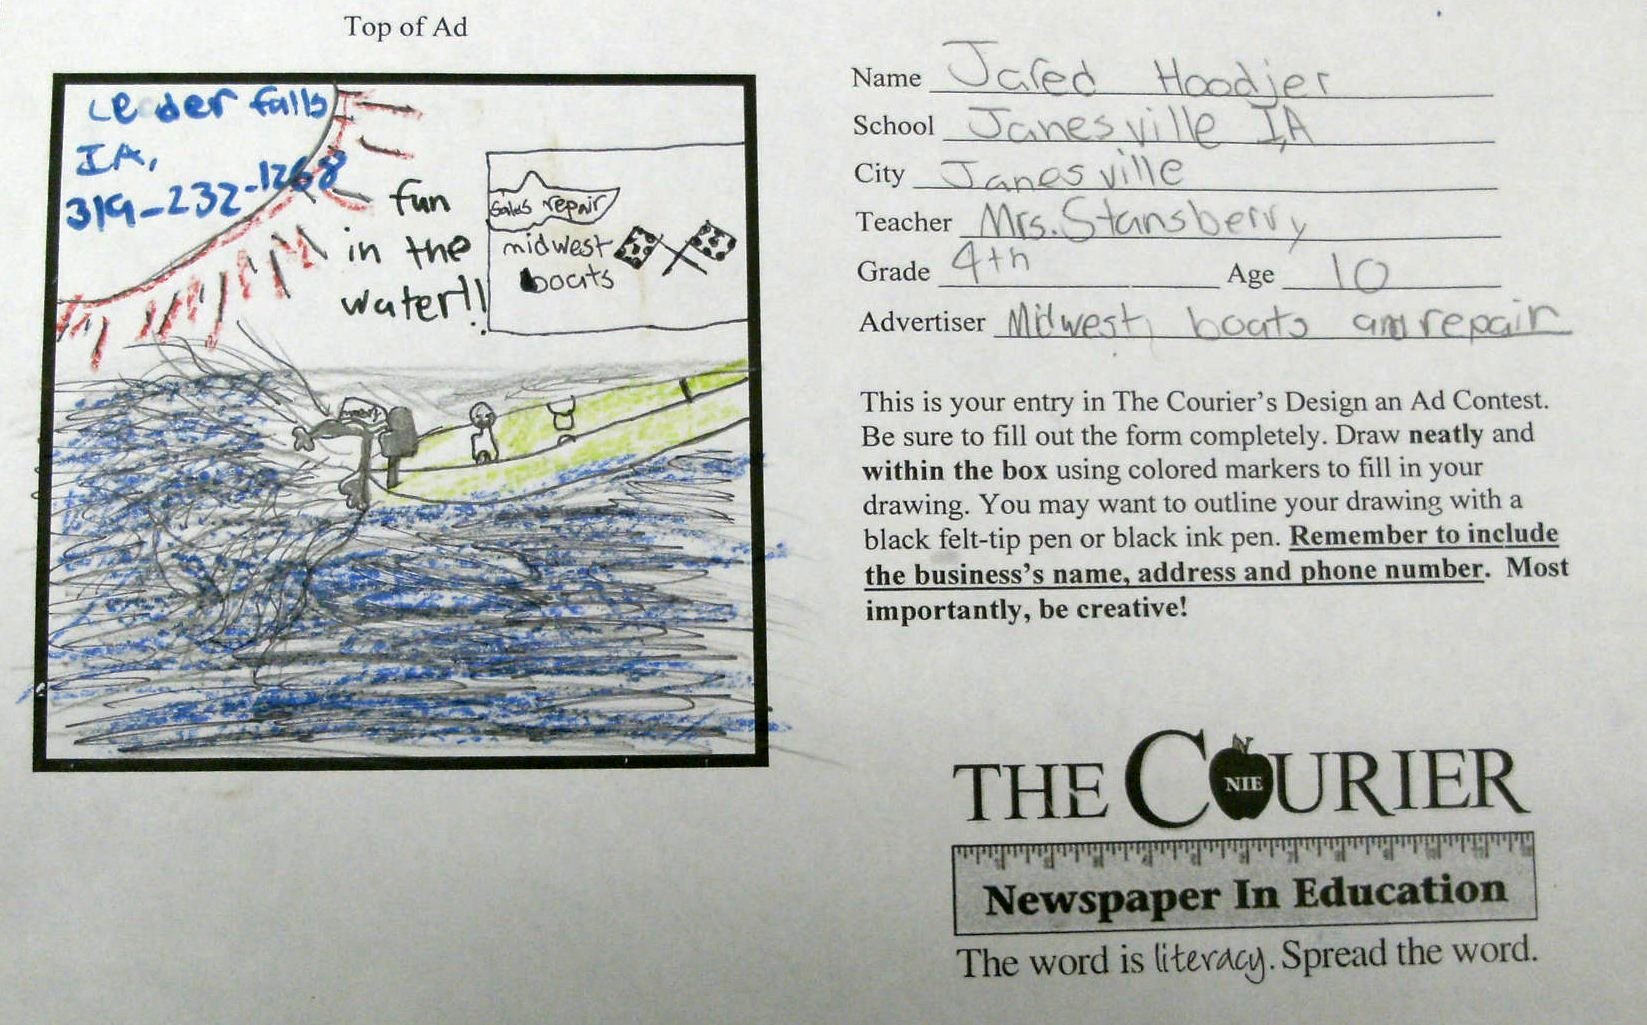 Top of Ad
Leder falls
IA,
319-232-1268
fun
in the
water!!
Sales repair
midwest
boats
Name Jared Hoodjer
School Janesville IA
City Janesville
Teacher Mrs. Stansberry
Grade 4th Age 10
Advertiser Midwest boats and repair
This is your entry in The Courier's Design an Ad Contest.
Be sure to fill out the form completely. Draw neatly and
within the box using colored markers to fill in your
drawing. You may want to outline your drawing with a
black felt-tip pen or black ink pen. Remember to include
the business's name, address and phone number. Most
importantly, be creative!
THE COURIER
NIE
Newspaper In Education
The word is literacy. Spread the word.